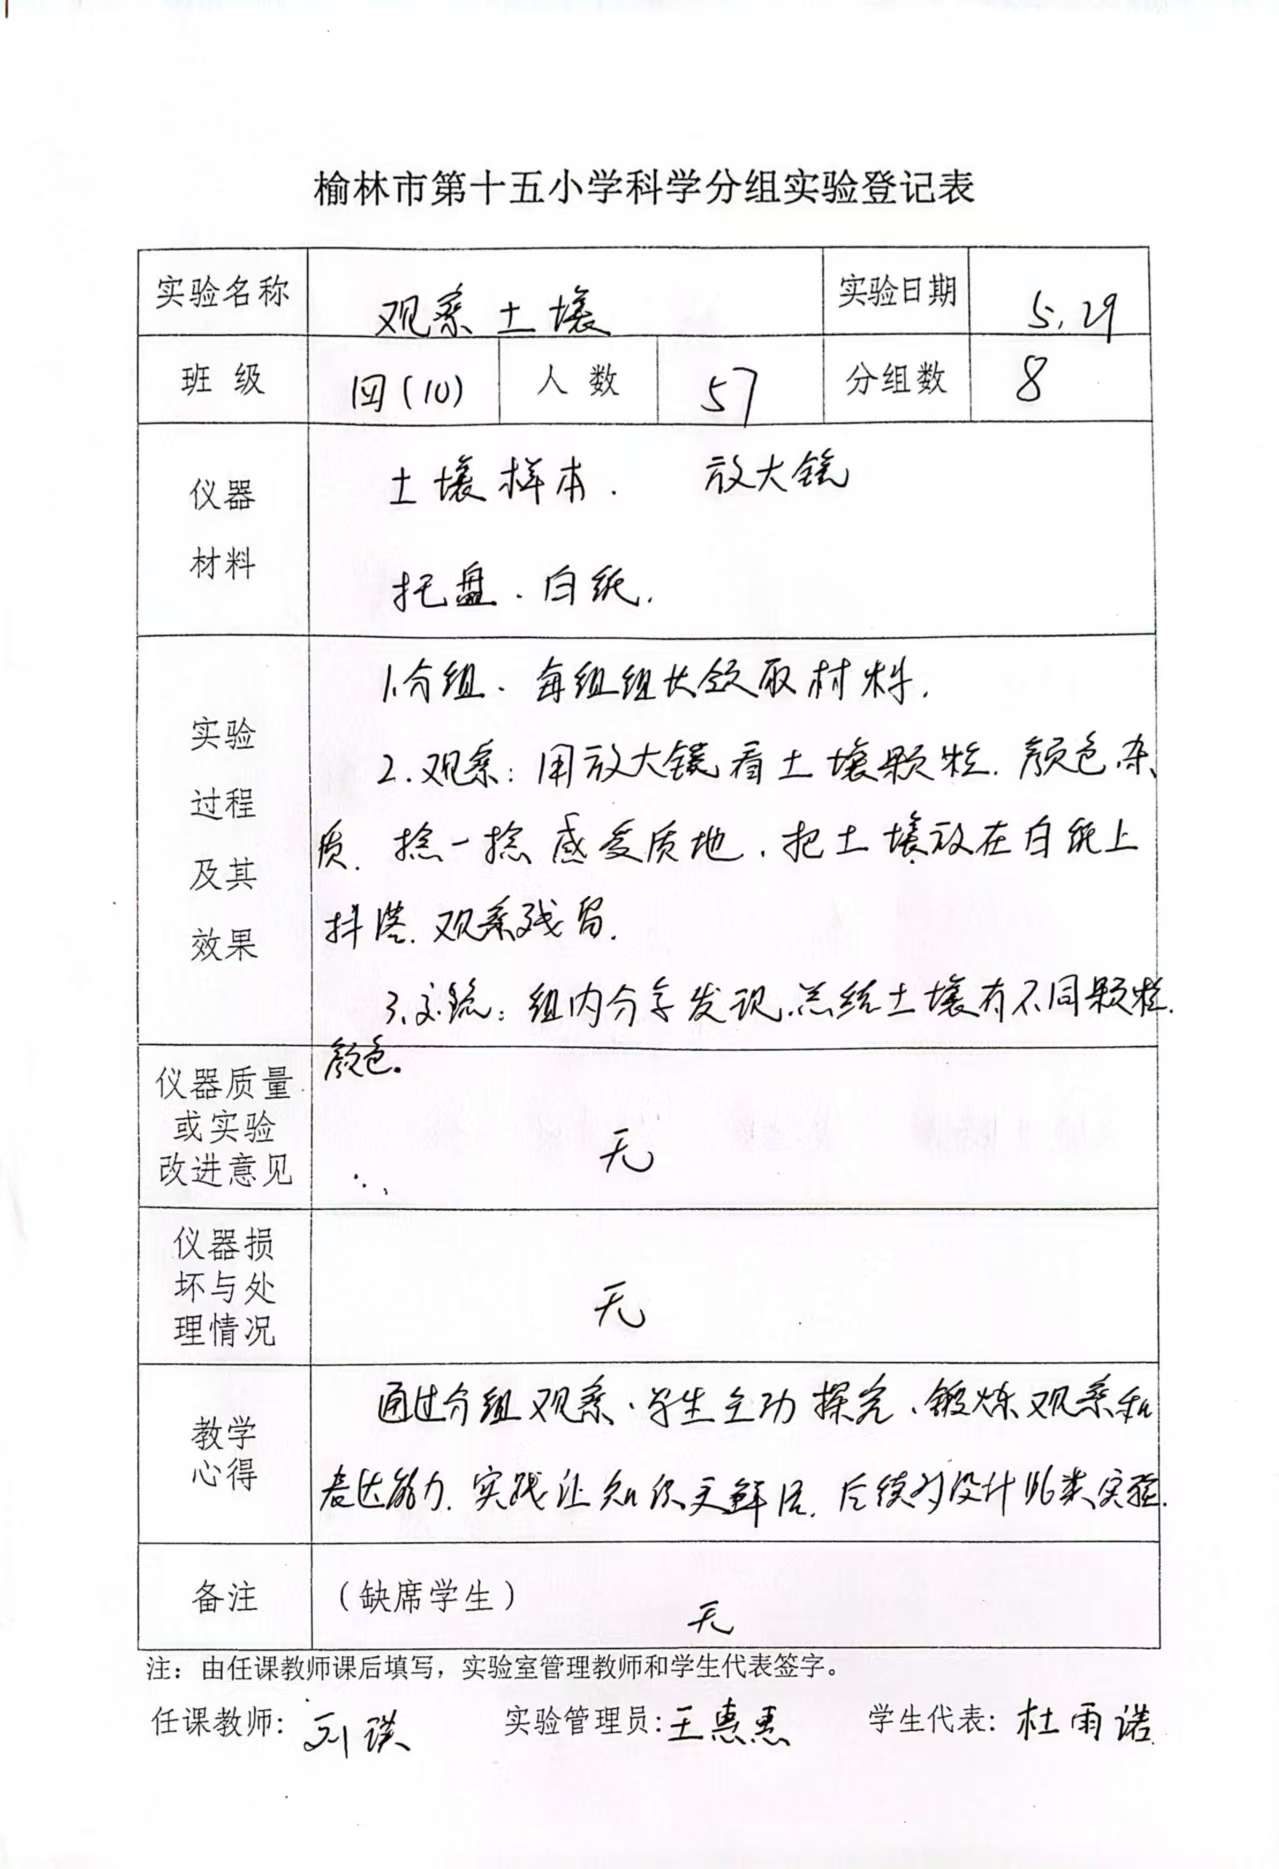 榆林市第十五小学科学分组实验登记表
实验名称 观察土壤 实验日期 5.29
班级 四(10) 人数 57 分组数 8
仪器材料 土壤样本. 放大镜
托盘. 白纸.
实验过程及其效果
1.分组. 每组组长领取材料.
2.观察:用放大镜看土壤颗粒. 颜色杂
质. 捻一捻感受质地.把土壤放在白纸上
抖落.观察残留.
3.交流:组内分享发现.总结土壤有不同颗粒.
颜色。
仪器质量或实验改进意见 无
仪器损坏与处理情况 无
教学心得
通过分组观察.学生主动探究.锻炼观察和
表达能力.实践让知识更鲜活.后续多设计此类实验.
备注 (缺席学生) 无
注:由任课教师课后填写,实验室管理教师和学生代表签字。
任课教师:刘瑛 实验管理员:王惠惠 学生代表:杜雨诺